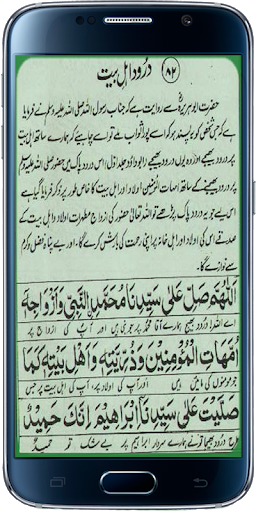 ۸۲ درود اہل بیت
حضرت ابو ہریرہؓ سے روایت ہے کہ جناب رسول اللہ صلی اللہ علیہ وسلم نے فرمایا
ہے کہ جس شخص کو یہ پسند ہو کہ اسے پورا ثواب ملے تو اسے چاہیے کہ ہمارے ساتھ اہل بیت
پر درود بھیجے اور وہ یوں درود بھیجے (ابو داؤد جلد اول) اس درود پاک میں حضور صلی اللہ علیہ وسلم
پر درود بھیجنے کے ساتھ امہات المومنین اور اہل بیت کا خاص طور پر ذکر فرمایا گیا ہے
اس لیے جو یہ درود پاک پڑھے گا تو اللہ تعالیٰ حضور کی ازواج مطہرات اولاد اور اہل بیت کے
صدقے اس کی اولاد اور اہل خانہ پر اپنی رحمت کی بارش کرے گا۔ اور بے پناہ فضل و کرم
سے نوازے گا۔
اَللّٰهُمَّ صَلِّ عَلٰى سَيِّدِنَا مُحَمَّدِ النَّبِيِّ وَاَزْوَاجِهٖ
اے اللہ! درود بھیج ہمارے آقا محمد پر جو نبی ہیں اور آپ کی ازواج پر
اُمَّهَاتِ الْمُؤْمِنِيْنَ وَذُرِّيَّتِهٖ وَاَهْلِ بَيْتِهٖ كَمَا
جو مومنوں کی مائیں ہیں اور آپ کی اولاد پر اور آپ کی اہل بیت پر جس
صَلَّيْتَ عَلٰى سَيِّدِنَا اِبْرَاهِيْمَ اِنَّكَ حَمِيْدٌ
طرح درود بھیجا تو نے ہمارے سردار ابراہیم پر بے شک تو حمید